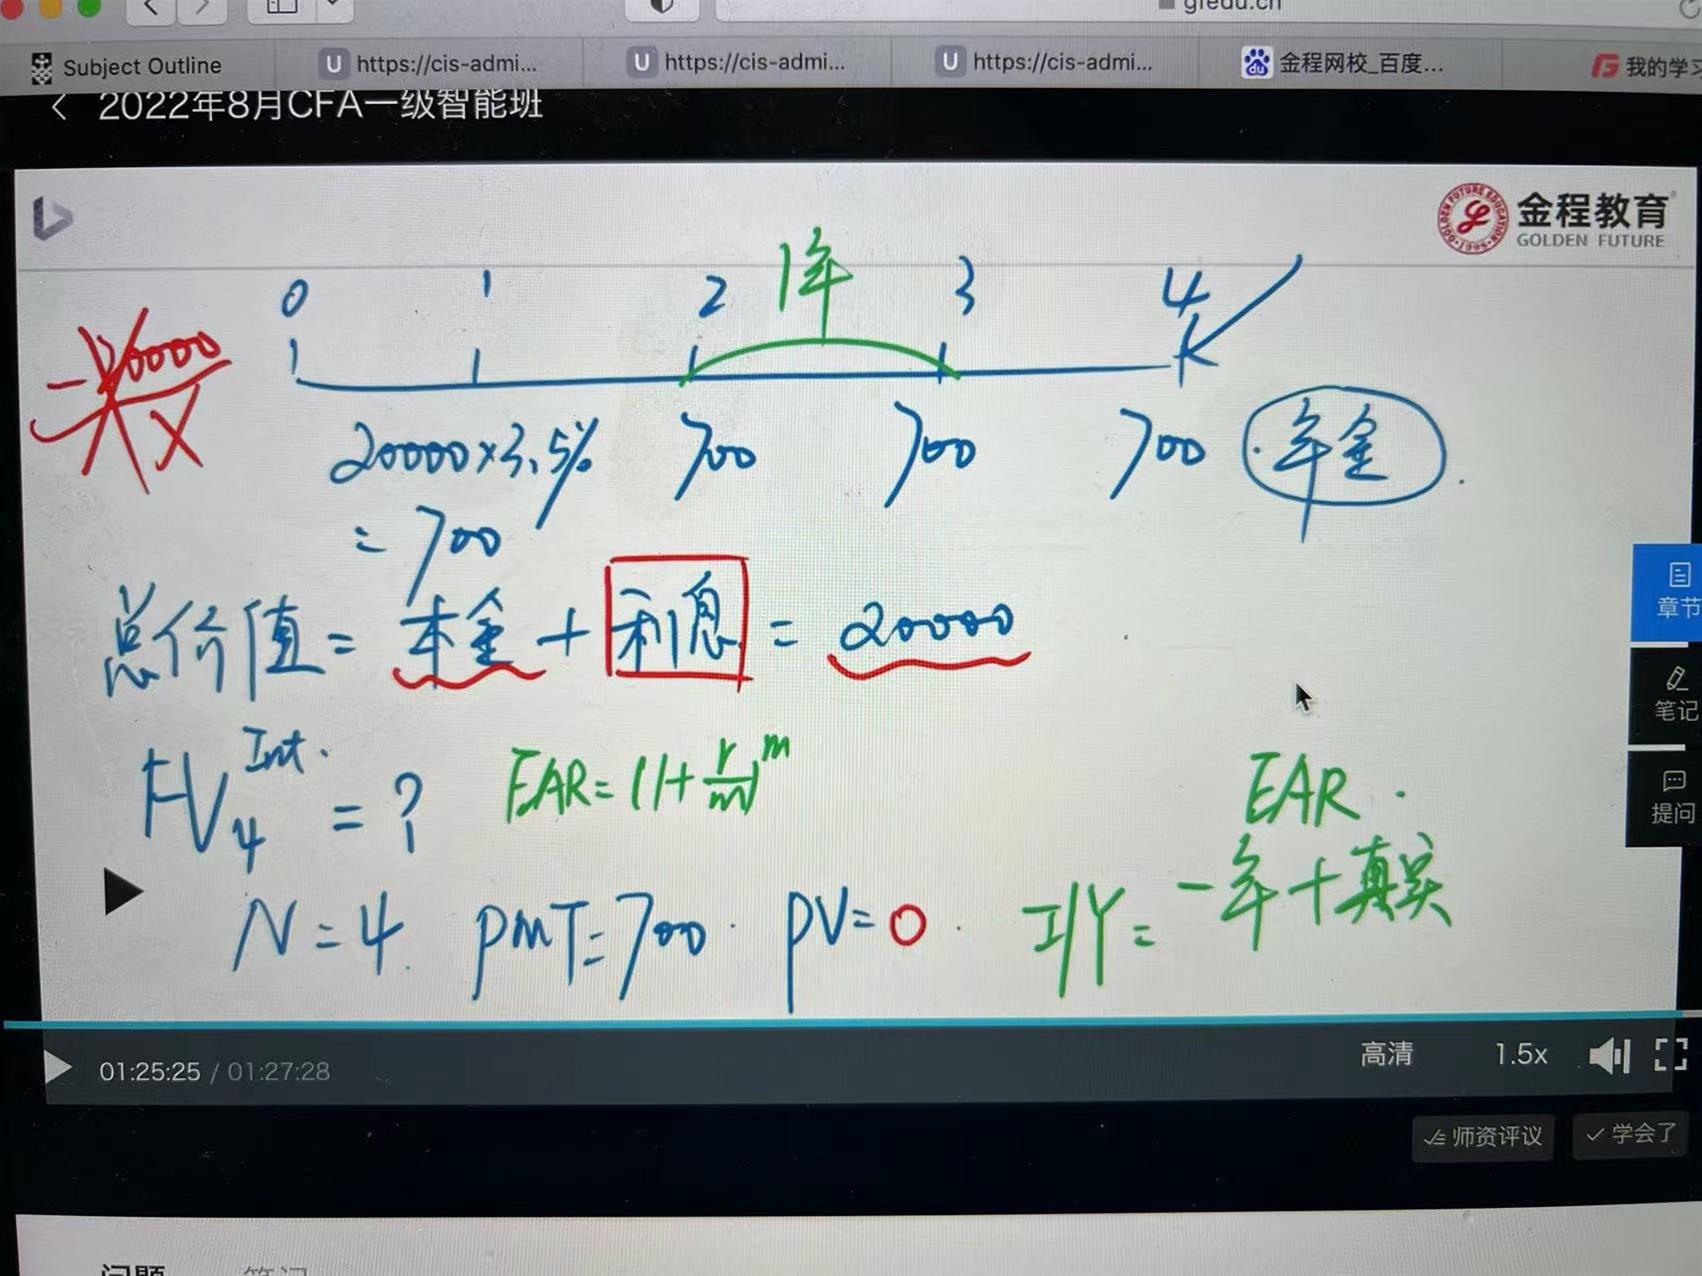 gfedu.cn
Subject Outline
https://cis-admi...
https://cis-admi...
https://cis-admi...
金程网校_百度...
我的学习
2022年8月CFA一级智能班
金程教育
GOLDEN FUTURE
0 1 2 1年 3 4
20000×3.5% 700 700 700 年金
= 700
总价值 = 本金 + 利息 = 20000
FV₄ Int. = ?
EAR = (1+r/m)^m
EAR.
N = 4. PMT = 700. PV = 0. I/Y = 一年+真实
章节
笔记
提问
01:25:25 / 01:27:28
高清
1.5x
师资评议
学会了
问题
笔记